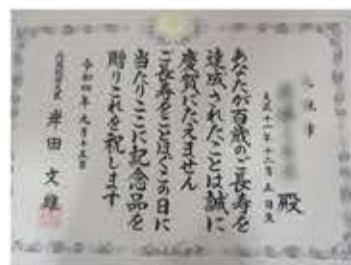 殿
大正十一年十二月五日生
あなたが百歳のご長寿を
達成されたことは誠に
慶賀にたえません
ご長寿をことほぐこの日に
当たりここに記念品を
贈りこれを祝します
令和四年九月十五日
内閣総理大臣 岸田文雄